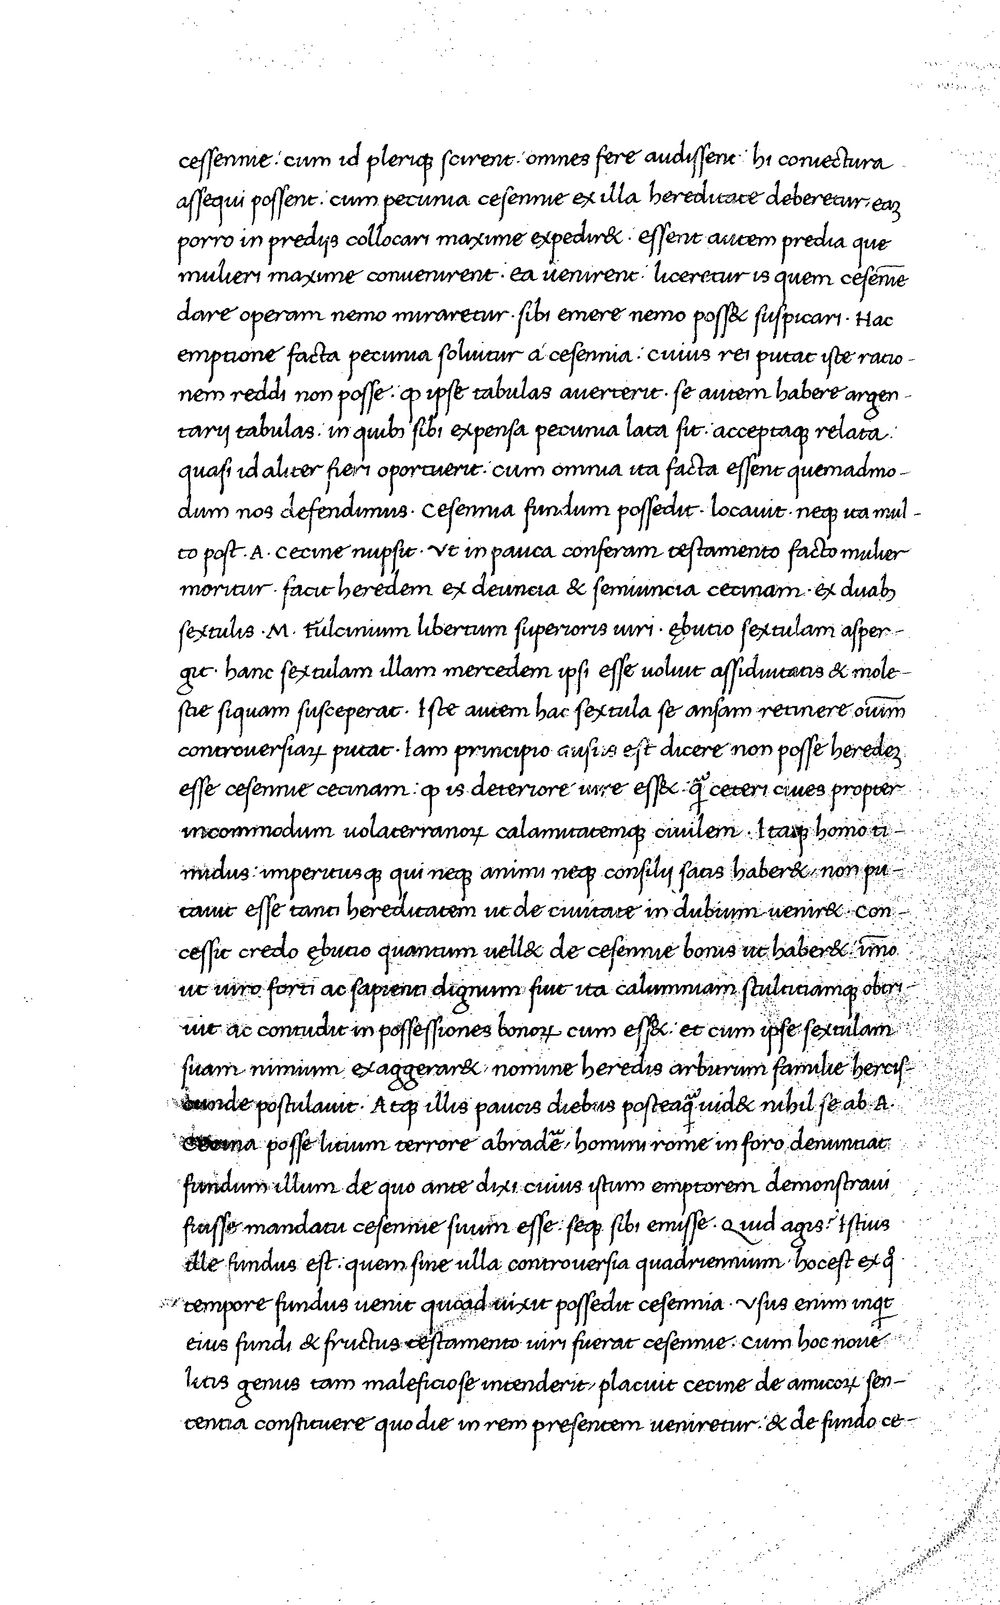 cessennie: cum id pleriq; scirent: omnes fere audissent: hi coniectura
assequi possent: cum pecunia cesennie ex illa hereditate deberetur, eaꝫ
porro in predijs collocari maxime expedir&: essent autem predia que
mulieri maxime convenirent: ea uenirent: liceretur is quem cesen̅ie
dare operam nemo miraretur: sibi emere nemo poss& suspicari. Hac
emptione facta pecunia soluitur á cesennia: cuius rei putat iste ratio-
nem reddi non posse: ꝙ ipse tabulas auerterit: se autem habere argen-
tarij tabulas: in quibꝫ sibi expensa pecunia lata sit: acceptaq; relata:
quasi id aliter fieri oportuerit: cum omnia ita facta essent quemadmo-
dum nos defendimus. Cesennia fundum possedit. locauit. neq; ita mul-
to post .A. Cecine nupsit. Vt in pauca conferam testamento facto mulier
moritur. facit heredem ex deuncia & semiuncia cecinam. ex duabꝫ
sextulis .M. Fulcinium libertum superioris uiri. ębutio sextulam asper-
git. hanc sextulam illam mercedem ipsi esse uoluit assiduitatis & mole-
stie siquam susceperat. Iste autem hac sextula se ansam retinere oi̅um̅
controuersiaꝝ putat. Iam principio ausus est dicere non posse heredeꝫ
esse cesennie cecinam: ꝙ is deteriore iure ess&: q̃ ceteri ciues propter
incommodum uolaterranoꝝ calamitatemq; ciuilem. Itaq; homo ti-
midus: imperitusq; qui neq; animi neq; consilij satis haber&, non pu-
tauit esse tanti hereditatem ut de ciuitate in dubium uenir&. Con-
cessit credo ębutio quantum uell& de cesennie bonis ut haber&: im̅o
ut uiro forti ac sapienti dignum fuit ita calumniam stultitiamq; obtri-
uit ac contudit in possessiones bonoꝝ cum ess&: et cum ipse sextulam
suam nimium exaggerar&: nomine heredis arbitrum familie hercis-
cunde postulauit. Atq; illis paucis diebus posteaq̃ uid& nihil se ab .A.
Cecina posse litium terrore abrade̅, homini rome in foro denuntiat
fundum illum de quo ante dixi cuius istum emptorem demonstraui
fuisse mandatu cesennie suum esse: seq; sibi emisse. Quid agis? Istius
ille fundus est: quem sine ulla controuersia quadriennium: hocest ex qͦ
tempore fundus uenit quoad uixit possedit cesennia. Vsus enim inqͥt
eius fundi & fructus testamento uiri fuerat cesennie. Cum hoc noue
litis genus tam maleficiose intenderit, placuit cecine de amicoꝝ sen-
tentia constituere quo die in rem presentem ueniretur: & de fundo ce-